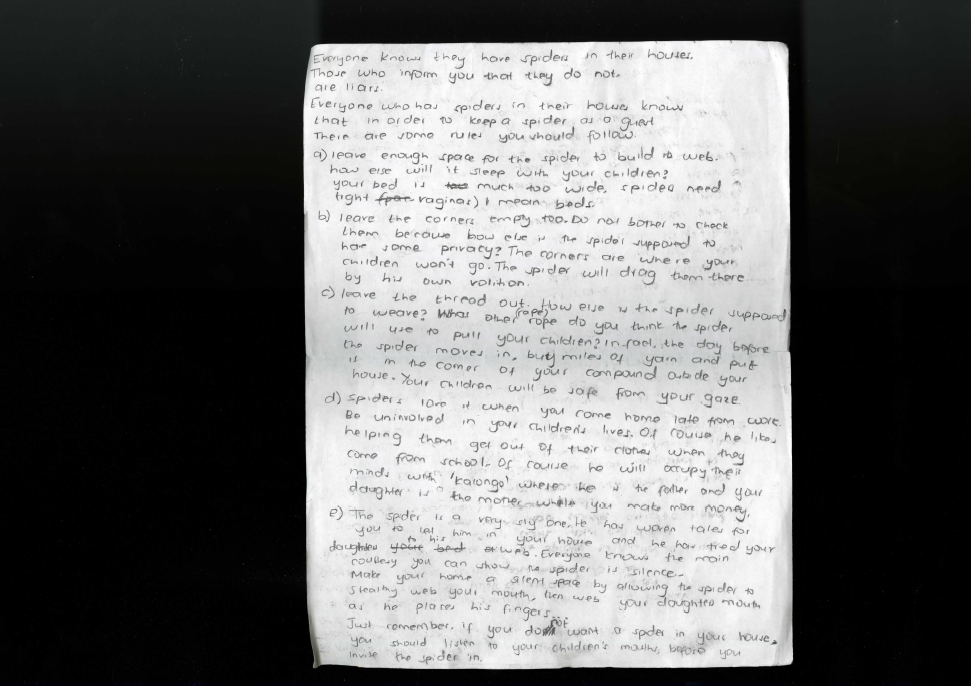 Everyone knows they have spiders in their houses.
Those who inform you that they do not,
are liars.
Everyone who has spiders in their houses knows
that in order to keep a spider as a guest
There are some rules you should follow.
a) leave enough space for the spider to build its web.
how else will it sleep with your children?
your bed is much too wide, spiders need
tight vaginas) I mean beds.
b) leave the corners empty too. Do not bother to check
them because how else is the spider supposed to
have some privacy? The corners are where your
children won't go. The spider will drag them there
by his own volition.
c) leave the thread out. How else is the spider supposed
to weave? What other (rope) rope do you think the spider
will use to pull your children? In fact, the day before
the spider moves in, buy miles of yarn and put
is in the corner of your compound outside your
house. Your children will be safe from your gaze
d) Spiders love it when you come home late from work.
Be uninvolved in your children's lives. Of course he likes
helping them get out of their clothes when they
come from school. Of course he will occupy their
minds with 'kalongo' where he is the father and your
daughter is the mother while you make more money.
e) The spider is a very sly one. He has woven tales for
you to let him in your house and he has tied your
daughter to his web. Everyone knows the main
courtesy you can show the spider is silence.
Make your home a silent space by allowing the spider to
stealthy web your mouth, then web your daughters mouth
as he places his fingers.
Just remember, if you do not want a spider in your house,
you should listen to your children's mouths, before you
invite the spider in.